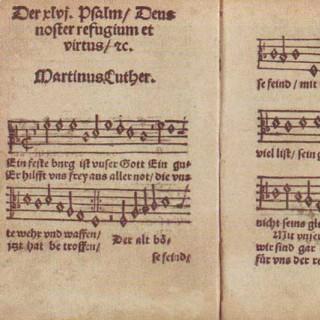 Der xlvj. Psalm/ Deus
noster refugium et
virtus/ ⁊c.
Martinus Luther.
Ein feste burg ist vnser Gott Ein gu-
Er hilfft vns frey aus aller not/ die vns
te wehr vnd waffen/
jtzt hat be troffen/
Der alt bö-
se feind/
se feind/ mit
viel list/ sein g
nicht seins gle
Mit vnser
wir sind gar
für vns der re